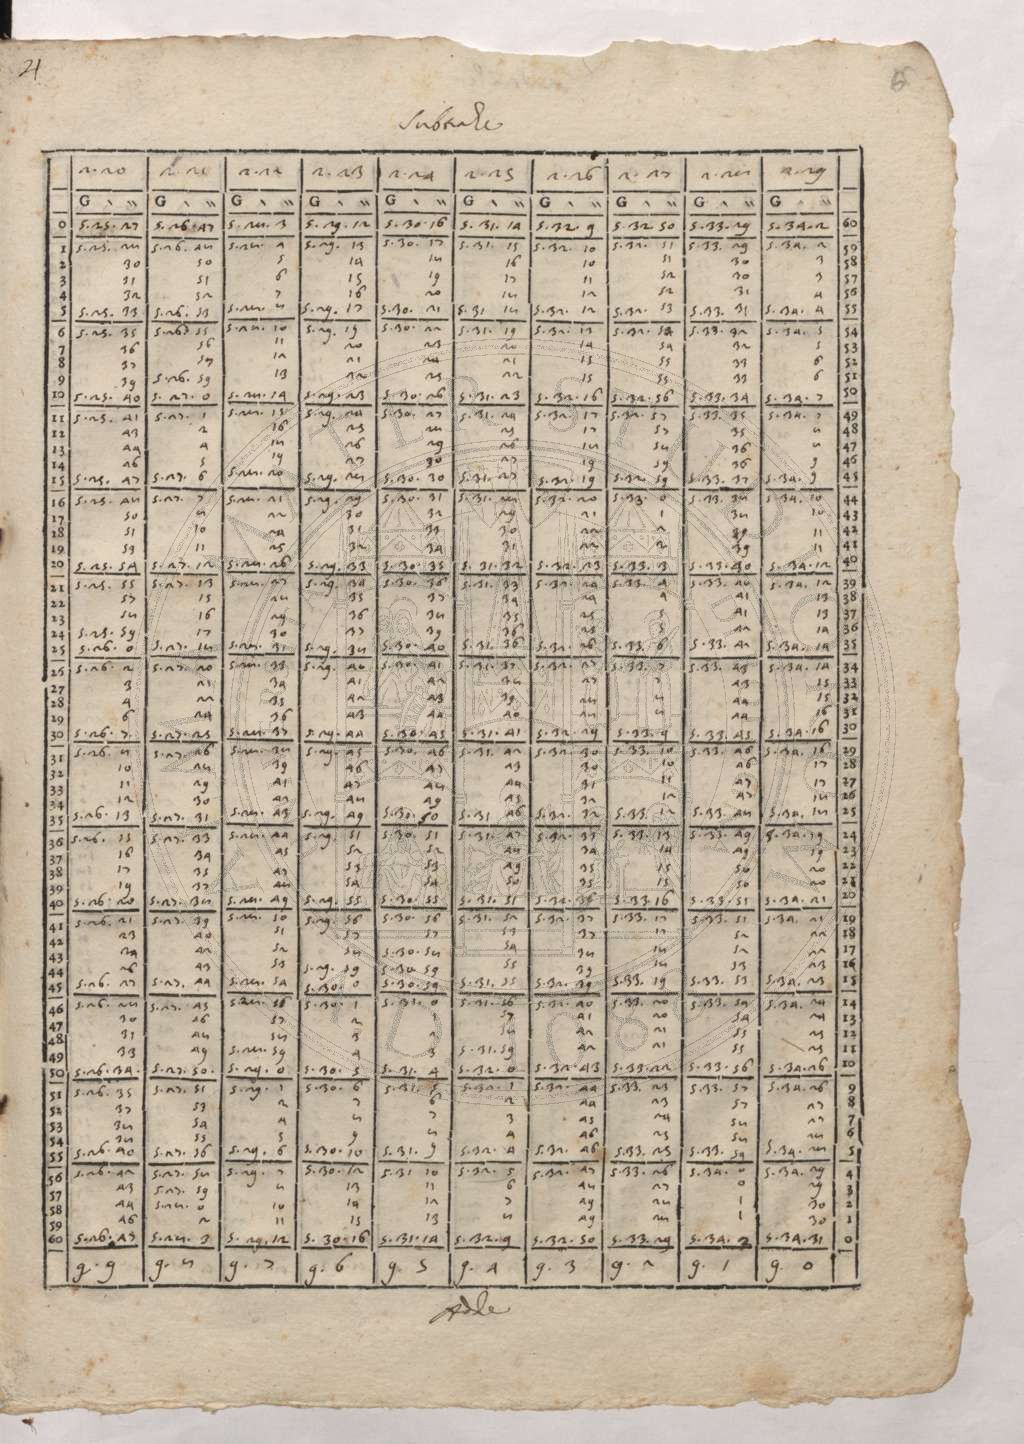 21
6
Subtrahe
2.20 2.21 2.22 2.23 2.24 2.25 2.26 2.27 2.28 2.29
G G G G G G G G G G
0 5.25.27 5.26.47 5.28.3 5.29.12 5.30.16 5.31.14 5.32.9 5.32.50 5.33.29 5.34.2 60
1 5.25.28 5.26.48 5.28.4 5.29.13 5.30.17 5.31.15 5.32.10 5.32.51 5.33.29 5.34.2 59
2 30 50 5 14 18 16 10 51 30 3 58
3 31 51 6 15 19 17 11 52 30 3 57
4 32 52 7 16 20 18 12 52 31 4 56
5 5.25.33 5.26.53 5.28.8 5.29.17 5.30.21 5.31.18 5.32.12 5.32.53 5.33.31 5.34.4 55
6 5.25.35 5.26.55 5.28.10 5.29.19 5.30.22 5.31.19 5.32.13 5.32.54 5.33.32 5.34.5 54
7 36 56 11 20 23 20 14 54 32 5 53
8 37 57 12 21 24 21 15 55 33 6 52
9 39 5.26.59 13 22 25 22 15 55 33 6 51
10 5.25.40 5.27.0 5.28.14 5.29.23 5.30.26 5.31.23 5.32.16 5.32.56 5.33.34 5.34.7 50
11 5.25.41 5.27.1 5.28.15 5.29.24 5.30.27 5.31.24 5.32.17 5.32.57 5.33.35 5.34.7 49
12 43 2 16 25 28 25 17 57 35 8 48
13 44 4 18 26 29 26 18 58 36 8 47
14 46 5 19 27 30 27 19 59 36 9 46
15 5.25.47 5.27.6 5.28.20 5.29.28 5.30.30 5.31.27 5.32.19 5.32.59 5.33.37 5.34.9 45
16 5.25.48 5.27.7 5.28.21 5.29.29 5.30.31 5.31.28 5.32.20 5.33.0 5.33.38 5.34.10 44
17 50 8 22 30 32 29 21 1 38 10 43
18 51 10 24 31 33 30 22 2 39 11 42
19 53 11 25 32 34 31 22 2 39 11 41
20 5.25.54 5.27.12 5.28.26 5.29.33 5.30.35 5.31.32 5.32.23 5.33.3 5.33.40 5.34.12 40
21 5.25.55 5.27.13 5.28.27 5.29.34 5.30.36 5.31.33 5.32.24 5.33.4 5.33.40 5.34.12 39
22 57 15 28 35 37 34 24 4 41 13 38
23 58 16 29 36 38 35 25 5 41 13 37
24 5.25.59 17 30 37 39 36 25 5 42 14 36
25 5.26.0 5.27.18 5.28.31 5.29.38 5.30.40 5.31.36 5.32.26 5.33.6 5.33.42 5.34.14 35
26 5.26.2 5.27.20 5.28.33 5.29.40 5.30.41 5.31.37 5.32.27 5.33.7 5.33.43 5.34.14 34
27 3 21 34 41 42 38 27 7 43 15 33
28 4 22 35 42 43 39 28 8 44 15 32
29 6 24 36 43 44 40 28 8 44 16 31
30 5.26.7 5.27.25 5.28.37 5.29.44 5.30.45 5.31.41 5.32.29 5.33.9 5.33.45 5.34.16 30
31 5.26.8 5.27.26 5.28.38 5.29.45 5.30.46 5.31.42 5.32.30 5.33.10 5.33.46 5.34.16 29
32 10 28 39 46 47 43 30 10 46 17 28
33 11 29 41 47 48 44 31 11 47 17 27
34 12 30 42 48 49 45 32 12 47 18 26
35 5.26.13 5.27.31 5.28.43 5.29.49 5.30.50 5.31.46 5.32.32 5.33.12 5.33.48 5.34.18 25
36 5.26.15 5.27.33 5.28.44 5.29.51 5.30.51 5.31.47 5.32.33 5.33.13 5.33.49 5.34.19 24
37 16 34 45 52 52 48 34 14 49 19 23
38 17 35 47 53 53 49 35 15 50 20 22
39 19 37 48 54 54 50 35 15 50 20 21
40 5.26.20 5.27.38 5.28.49 5.29.55 5.30.55 5.31.51 5.32.36 5.33.16 5.33.51 5.34.21 20
41 5.26.21 5.27.39 5.28.50 5.29.56 5.30.56 5.31.52 5.32.37 5.33.17 5.33.51 5.34.21 19
42 23 40 51 57 57 53 37 17 52 22 18
43 24 42 52 58 5.30.58 54 38 18 52 22 17
44 26 43 53 5.29.59 5.30.59 55 39 18 53 23 16
45 5.26.27 5.27.44 5.28.54 5.30.0 5.30.59 5.31.55 5.32.39 5.33.19 5.33.53 5.34.23 15
46 5.26.28 5.27.45 5.28.56 5.30.1 5.31.0 5.31.56 5.32.40 5.33.20 5.33.54 5.34.24 14
47 30 46 57 2 1 57 41 20 54 24 13
48 31 48 58 3 2 58 42 21 55 25 12
49 33 49 5.28.59 4 3 5.31.59 42 21 55 25 11
50 5.26.34 5.27.50 5.29.0 5.30.5 5.31.4 5.32.0 5.32.43 5.33.22 5.33.56 5.34.26 10
51 5.26.35 5.27.51 5.29.1 5.30.6 5.31.5 5.32.1 5.32.44 5.33.23 5.33.57 5.34.26 9
52 37 53 2 7 6 2 44 23 57 27 8
53 38 54 4 8 7 3 45 24 58 27 7
54 38 55 5 9 8 4 46 25 58 28 6
55 5.26.40 5.27.56 5.29.6 5.30.10 5.31.9 5.32.4 5.32.46 5.33.25 5.33.59 5.34.28 5
56 5.26.42 5.27.58 5.29.7 5.30.12 5.31.10 5.32.5 5.32.47 5.33.26 5.34.0 5.34.29 4
57 43 5.27.59 8 13 11 6 48 27 0 29 3
58 44 5.28.0 10 14 12 7 49 28 1 30 2
59 46 2 11 15 13 8 49 28 1 30 1
60 5.26.47 5.28.3 5.29.12 5.30.16 5.31.14 5.32.9 5.32.50 5.33.29 5.34.2 5.34.31 0
9.9 9.8 9.7 9.6 9.5 9.4 9.3 9.2 9.1 9.0
Adde